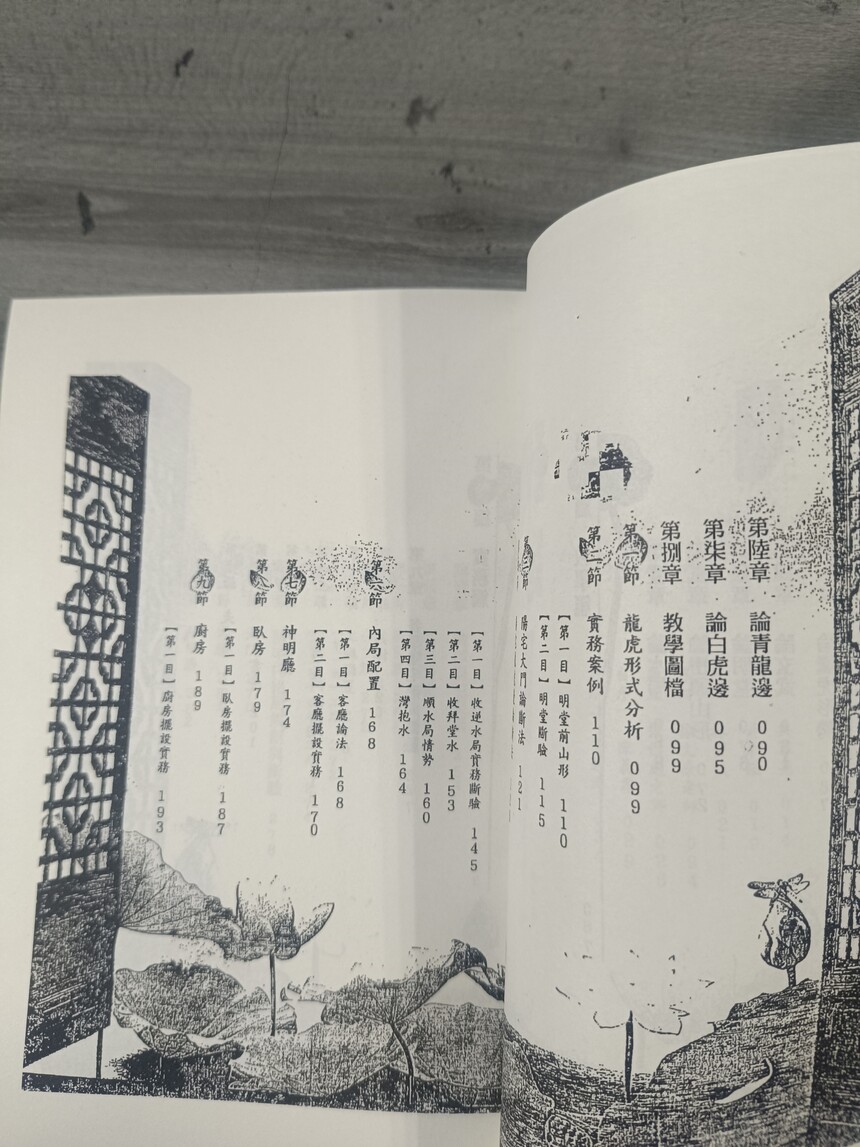 第陸章 論青龍邊 090
第柒章 論白虎邊 095
第捌章 教學圖檔 099
第一節 龍虎形式分析 099
第二節 實務案例 110
【第一目】明堂前山形 110
【第二目】明堂斷驗 115
第三節 陽宅大門論斷法 121
【第一目】收逆水局實務斷驗 145
【第二目】收拜堂水 153
【第三目】順水局情勢 160
【第四目】灣抱水 164
第六節 內局配置 168
【第一目】客廳論法 168
【第二目】客廳擺設實務 170
第七節 神明廳 174
第八節 臥房 179
【第一目】臥房擺設實務 187
第九節 廚房 189
【第一目】廚房擺設實務 193